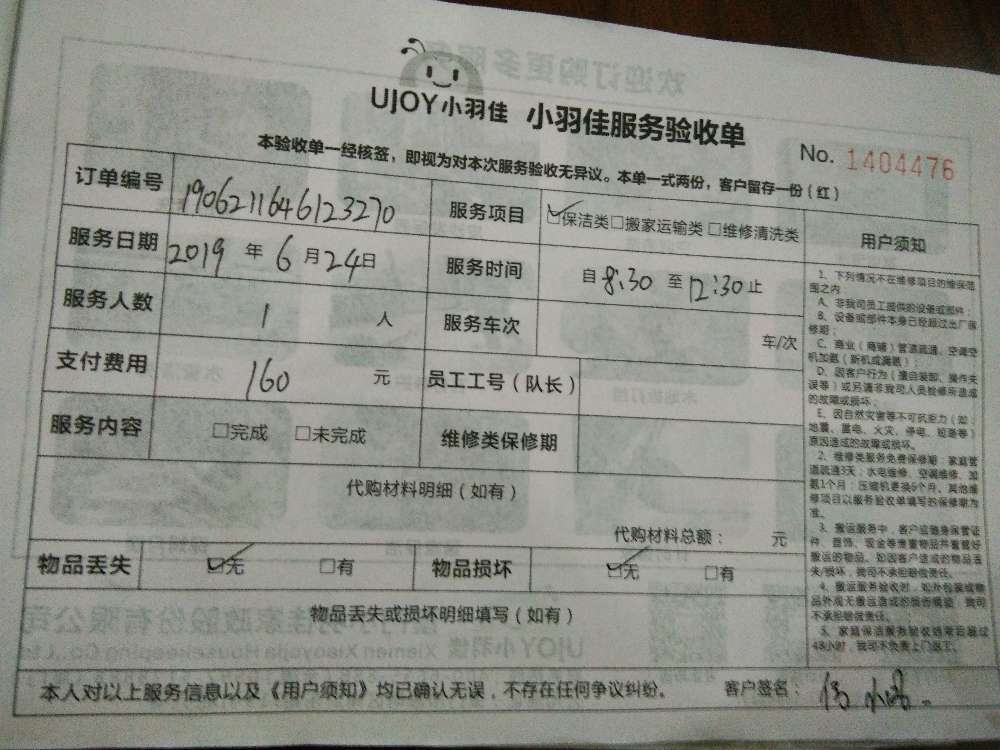 UJOY小羽佳 小羽佳服务验收单
No. 1404476
本验收单一经核签，即视为对本次服务验收无异议。本单一式两份，客户留存一份（红）
订单编号 1906211646123270 服务项目 ☑保洁类□搬家运输类 □维修清洗类
服务日期 2019 年 6 月 24 日 服务时间 自 8:30 至 12:30 止
服务人数 1 人 服务车次 车/次
支付费用 160 元 员工工号（队长）
服务内容 □完成 □未完成 维修类保修期
代购材料明细（如有）
代购材料总额： 元
物品丢失 ☑无 □有 物品损坏 ☑无 □有
物品丢失或损坏明细填写（如有）
用户须知
1、下列情况不在维修项目的维保范
围之内
A、非我司员工提供的设备或部件；
B、设备或部件本身已经超过出厂保
修期；
C、商业（商铺）管道疏通、空调空
机加氨（新机或漏氨）
D、因客户行为（擅自装卸、操作失
误等）或另请非我司人员检修所造成
的故障或损坏；
E、因自然灾害等不可抗拒力（如：
地震、雷电、火灾、停电、短路等）
原因造成的故障或损坏。
2、维修类服务免费保修期：家庭管
道疏通3天；水电维修、空调维修、加
氨1个月；压缩机更换6个月。其他维
修项目以服务验收单填写的保修期为
准。
3、搬运服务中，客户应随身保管证
件、首饰、现金等贵重物品并看管好
搬运的物品。如因客户造成的物品丢
失/损坏，我司不承担赔偿责任。
4、搬运服务验收时，如外包装或物
品外观无搬运造成的损伤痕迹，我司
不承担赔偿责任。
5、家庭保洁服务验收结束后超过
48小时，我司不负责上门返工。
本人对以上服务信息以及《用户须知》均已确认无误，不存在任何争议纠纷。 客户签名：